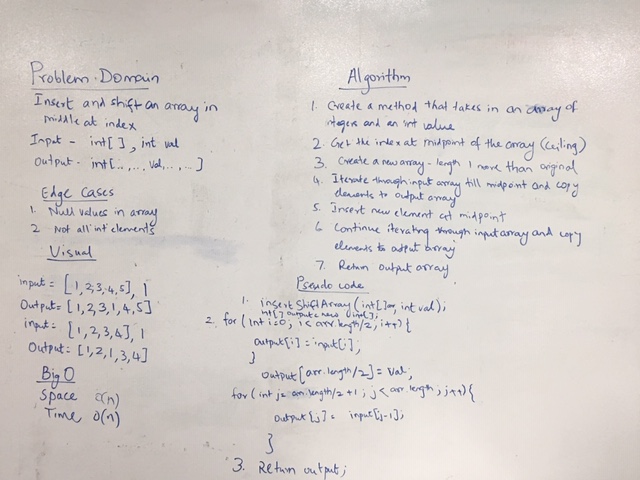 Problem Domain
Insert and shift an array in
middle at index
Input - int[ ], int val
Output - int[.., ..., val, ..., ..]
Edge Cases
1. Null values in array
2 Not all int elements
Visual
input = [1,2,3,4,5], 1
Output = [1,2,3,1,4,5]
input = [1,2,3,4], 1
Output = [1,2,1,3,4]
Big O
Space O(n)
Time O(n)
Algorithm
1. Create a method that takes in an array of
integers and an int value
2. Get the index at midpoint of the array (ceiling)
3. Create a new array - length 1 more than original
4. Iterate through input array till midpoint and copy
elements to output array
5. Insert new element at midpoint
6. Continue iterating through input array and copy
elements to output array
7. Return output array
Pseudo code
1. insertShiftArray (int[] arr, int val);
int[] output = new int[];
2. for (int i=0; i < arr.length/2; i++) {
output[i] = input[i];
}
output[arr.length/2] = val;
for (int j = arr.length/2+1; j < arr.length; j++) {
output[j] = input[j-1];
}
3. Return output;